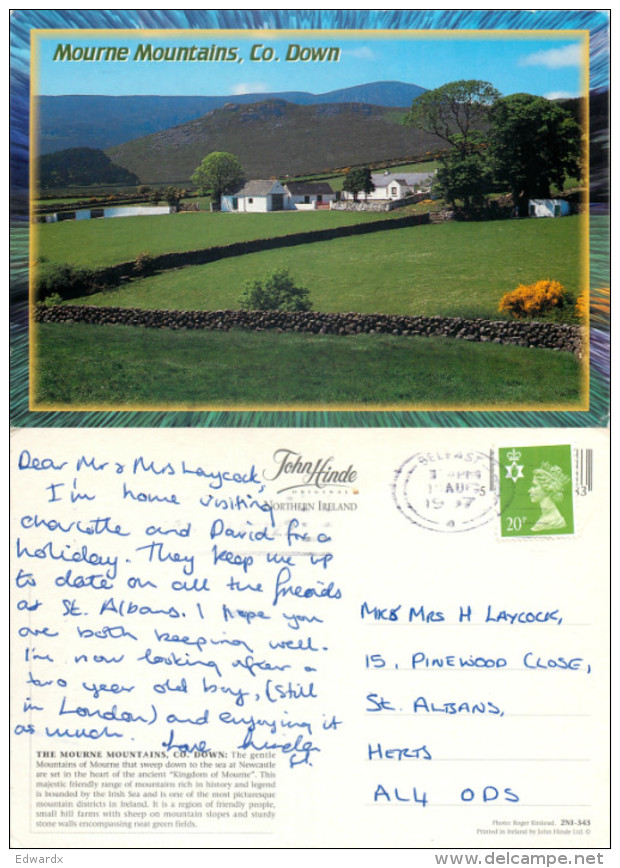 Mourne Mountains, Co. Down
Dear Mr & Mrs Laycock,
I'm home visiting
charlotte and David for a
holiday. They keep me up
to date on all the friends
at St. Albans. I hope you
are both keeping well.
I'm now looking after a
two year old boy, (still
in London) and enjoying it
as much. Love
THE MOURNE MOUNTAINS, CO. DOWN: The gentle
Mountains of Mourne that sweep down to the sea at Newcastle
are set in the heart of the ancient "Kingdom of Mourne". This
majestic friendly range of mountains rich in history and legend
is bounded by the Irish Sea and is one of the most picturesque
mountain districts in Ireland. It is a region of friendly people,
small hill farms with sheep on mountain slopes and sturdy
stone walls encompassing neat green fields.
John Hinde
ORIGINAL
NORTHERN IRELAND
BELFAST
AUG
1997
20P
MR & MRS H LAYCOCK,
15, PINEWOOD CLOSE,
St. ALBANS,
HERTS
AL4 0DS
Photo: Roger Kinkead. 2NI-343
Printed in Ireland by John Hinde Ltd. ©
Edwardx
delcampe.net